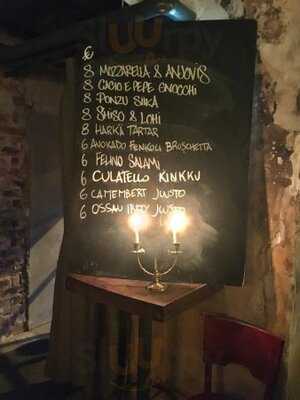 €
8 MOZZARELLA & ANJOVIS
8 CACIO E PEPE GNOCCHI
8 PONZU SIIKA
8 SHISO & LOHI
8 HÄRKÄ TARTAR
6 AVOKADO FENKOLI BRUSCHETTA
6 FELINO SALAMI
6 CULATELLO KINKKU
6 CAMEMBERT JUUSTO
6 OSSAU IRATY JUUSTO